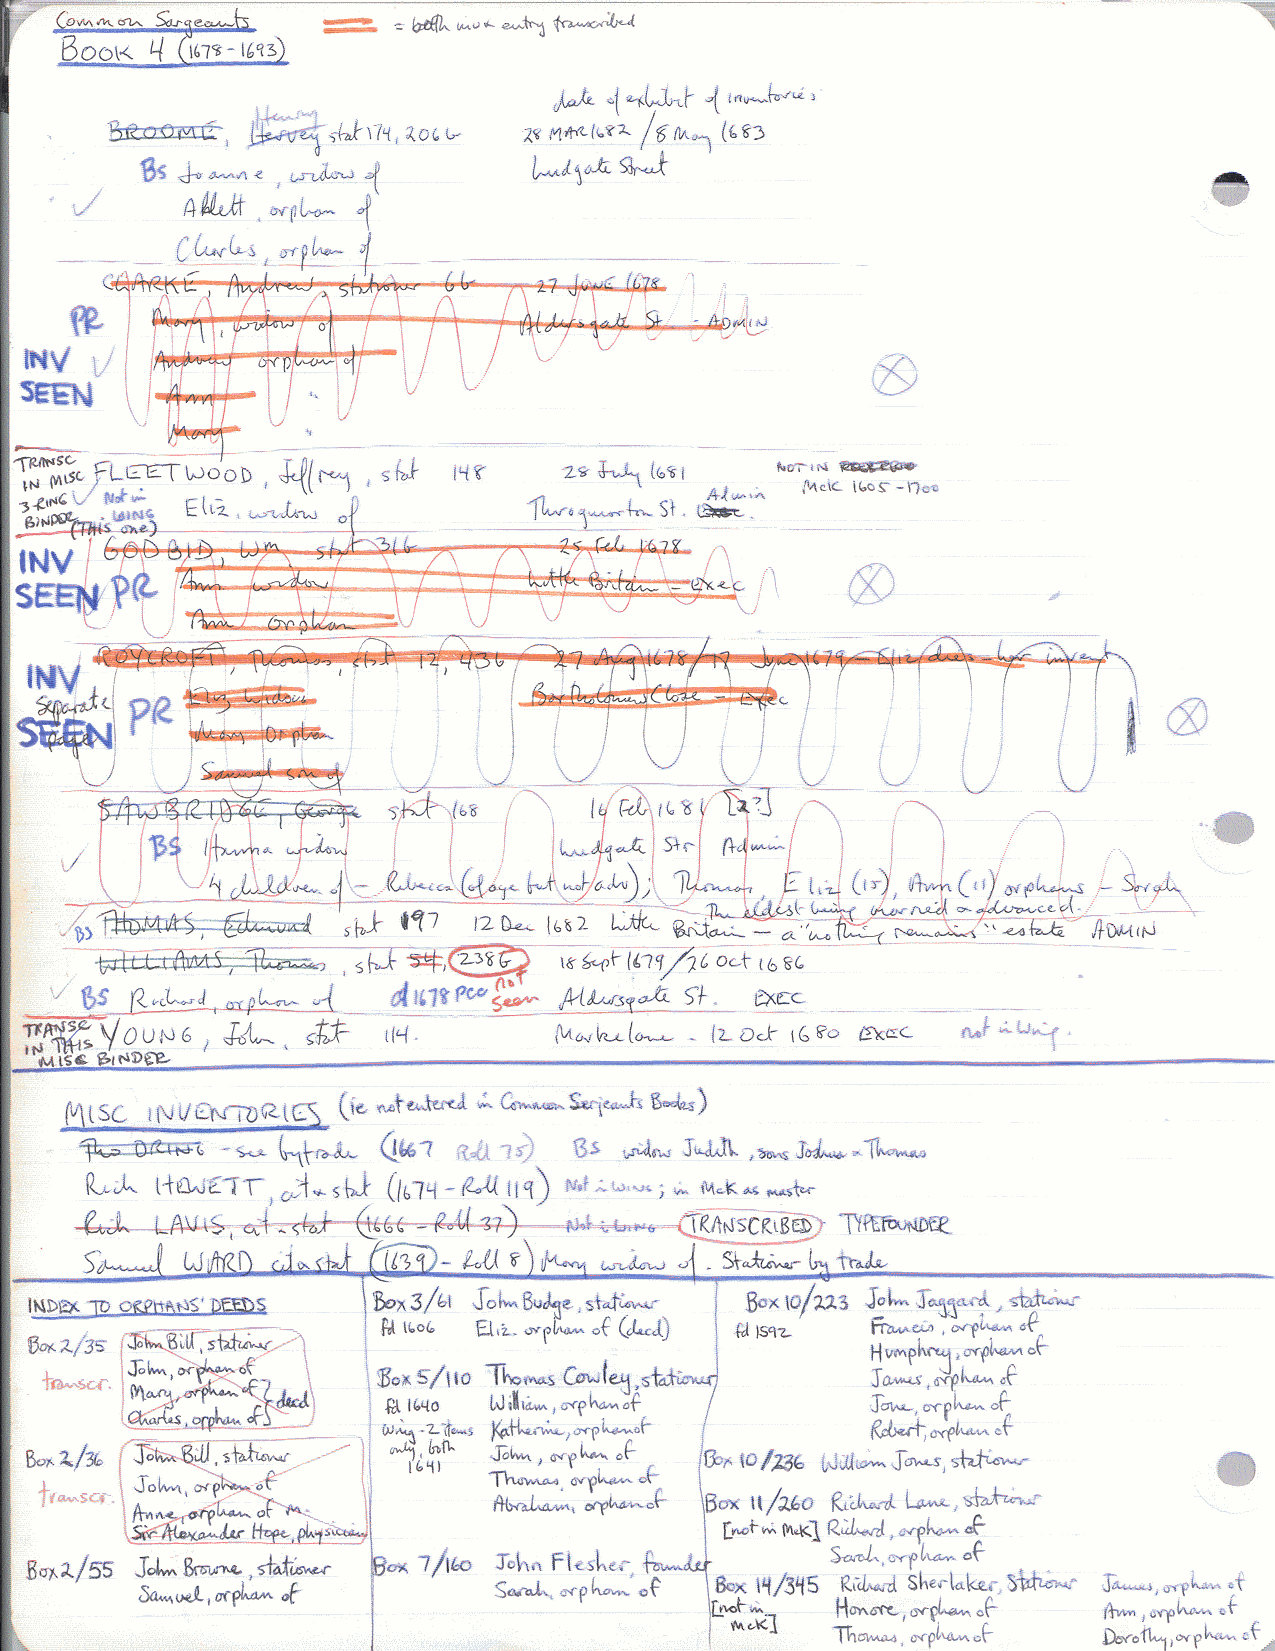 Common Sargeants
= both inv & entry transcribed
BOOK 4 (1678-1693)
date of exhibit of inventories
Henry
BROOME, Hervey stat 174, 206b 28 MAR 1682 / 8 May 1683
BS Joanne, widow of Ludgate Street
Ablett, orphan of
Charles, orphan of
CLARKE, Andrew, stationer 66 27 JUNE 1678
PR Mary, widow of Aldersgate St. - ADMIN
INV Andrew orphan of
SEEN Ann "
Mary "
TRANSC IN MISC 3-RING BINDER (THIS one)
FLEETWOOD, Jeffrey, stat 148 28 July 1681 NOT IN McK 1605-1700
Not in WING Eliz, widow of Throgmorton St. Admin
GODBID, Wm stat 316 25 Feb 1678
INV SEEN PR Ann widow Little Britain - Exec
Ann orphan
ROYCROFT, Thomas, stat 12, 436 27 Aug 1678/17 June 1679 - Eliz dies - her invent
INV Separate page SEEN PR Eliz widow Bartholomew Close - Exec
Mary Orphan
Samuel son of
SAWBRIDGE, George stat 168 16 Feb 1681 [2?]
BS Hanna widow Ludgate Str Admin
4 children of - Rebecca (of age but not adv); Thomas, Eliz (15), Ann (11) orphans - Sarah
The eldest being married & advanced.
BS THOMAS, Edmund stat 197 12 Dec 1682 Little Britain - a "nothing remains" estate ADMIN
WILLIAMS, Thomas, stat 54, 238b 18 Sept 1679/26 Oct 1686
BS Richard, orphan of d 1678 PCC not seen Aldersgate St. EXEC
TRANSC IN THIS MISC BINDER
YOUNG, John, stat 114. Marke lane - 12 Oct 1680 EXEC not in Wing.
MISC INVENTORIES (ie not entered in Common Serjeants Books)
Tho DRING - see by trade (1667 Roll 75) BS widow Judith, sons Joshua & Thomas
Rich HEWETT, cit & stat (1674 - Roll 119) Not in WING; in McK as master
Rich LAVIS, cit & stat (1666 - Roll 37) Not in WING TRANSCRIBED TYPEFOUNDER
Samuel WARD cit & stat (1639 - Roll 8) Mary widow of. Stationer by trade
INDEX TO ORPHANS' DEEDS
Box 2/35 John Bill, stationer
transcr. John, orphan of
Mary, orphan of } decd
Charles, orphan of
Box 2/36 John Bill, stationer
transcr. John, orphan of
Anne, orphan of m.
Sir Alexander Hope, physician
Box 2/55 John Browne, stationer
Samuel, orphan of
Box 3/61 John Budge, stationer
fd 1606 Eliz. orphan of (decd)
Box 5/110 Thomas Cowley, stationer
fd 1640 William, orphan of
Wing - 2 items only, both 1641
Katherine, orphan of
John, orphan of
Thomas, orphan of
Abraham, orphan of
Box 7/160 John Flesher, founder
Sarah, orphan of
Box 10/223 John Jaggard, stationer
fd 1592 Francis, orphan of
Humphrey, orphan of
James, orphan of
Jone, orphan of
Robert, orphan of
Box 10/236 William Jones, stationer
Box 11/260 Richard Lane, stationer
[not in McK] Richard, orphan of
Sarah, orphan of
Box 14/345 Richard Sherlaker, Stationer James, orphan of
[not in McK] Honore, orphan of Ann, orphan of
Thomas, orphan of Dorothy, orphan of